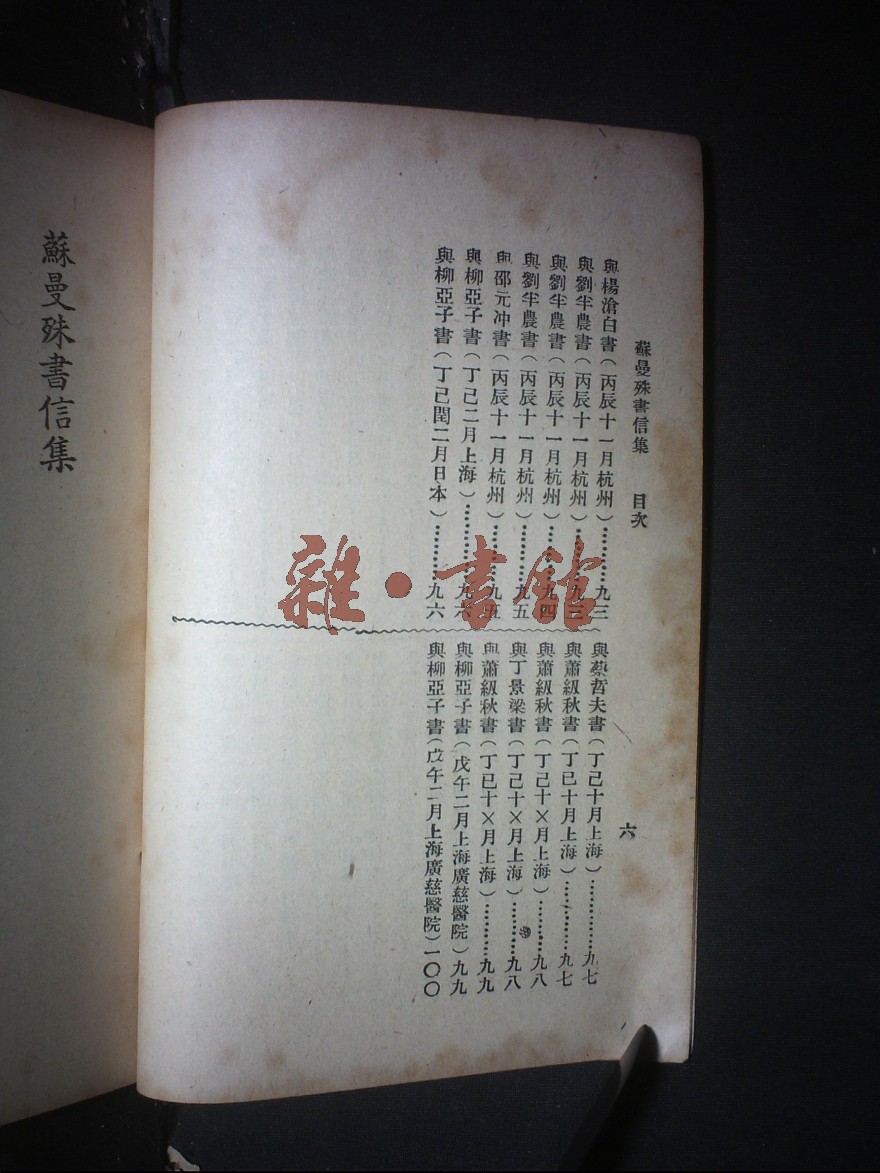 蘇曼殊書信集　目次
六
與楊滄白書（丙辰十一月杭州）…………九三
與劉半農書（丙辰十一月杭州）…………九三
與劉半農書（丙辰十一月杭州）…………九四
與劉半農書（丙辰十一月杭州）…………九五
與邵元冲書（丙辰十一月杭州）…………九五
與柳亞子書（丁己二月上海）…………九六
與柳亞子書（丁己閏二月日本）…………九六
與蔡哲夫書（丁己十月上海）…………九七
與蕭級秋書（丁巳十月上海）…………九七
與蕭級秋書（丁己十×月上海）…………九八
與丁景梁書（丁己十×月上海）…………九八
與蕭級秋書（丁巳十×月上海）…………九九
與柳亞子書（戊午二月上海廣慈醫院）九九
與柳亞子書（戊午二月上海廣慈醫院）一〇〇
蘇曼殊書信集
雜·書館